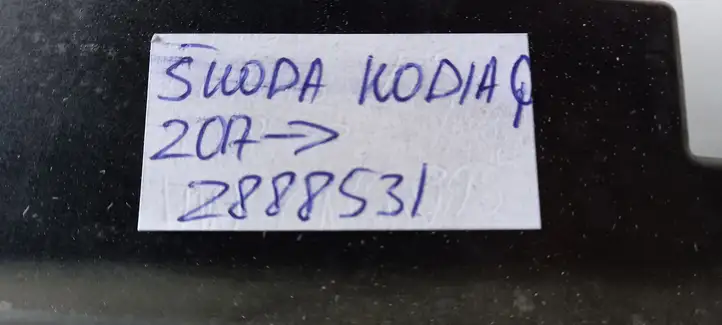 ŠKODA KODIAQ
2017→
2888531